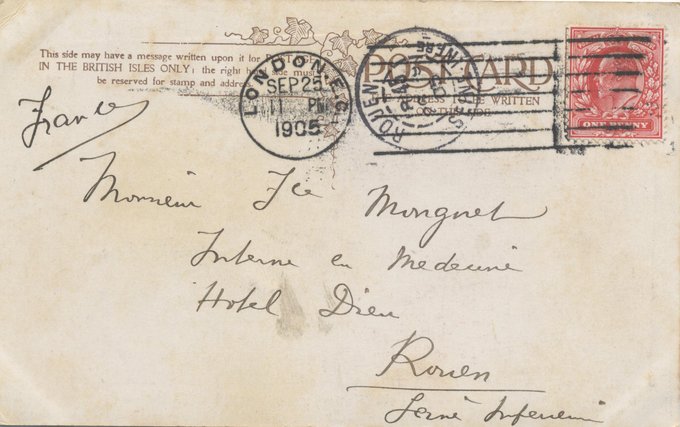 This side may have a message written upon it for
IN THE BRITISH ISLES ONLY; the right hand side must
be reserved for stamp and address
POST CARD
ADDRESS TO BE WRITTEN
ON THIS SIDE
LONDON. E.C.
SEP 25
11 PM
1905
ROUEN
ONE PENNY
France
Monsieur Jce Mongnet
Interne en Medecine
Hotel Dieu
Rouen
Seine Inferieure